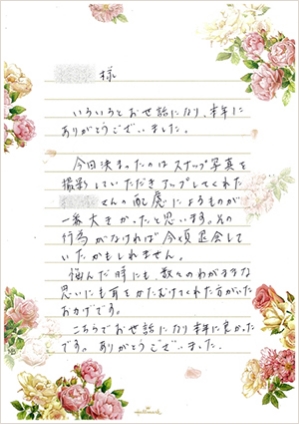 様
いろいろとお世話になり、本当に
ありがとうございました。
今回決まったのはスナップ写真を
撮影していただきアップしてくれた
くんの配慮によるものが
一番大きかったと思います。その
行為がなければ今頃退会して
いたかもしれません。
悩んだ時にも、数々のわがままな
思いにも耳をかたむけてくれた方がいた
おかげです。
こちらでお世話になり本当に良かった
です。ありがとうございました。
Hallmark